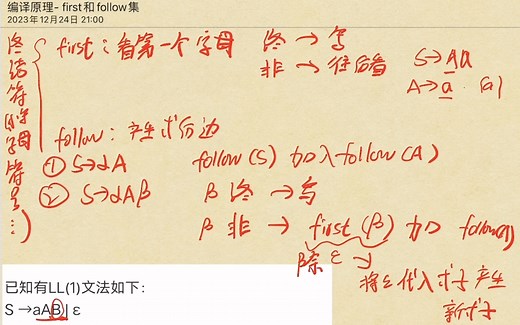 编译原理- first和follow集
2023年12月24日 21:00
终结符 小写字母 符号…
first：看第一个字母 终 → 写
非 → 往后看
S→Aa
A→a {a}
follow：产生式后边
① S→αA follow(S) 加入 follow(A)
② S→αAβ β 终 → 写
β 非 → first(β) 加 follow(A)
除 ε
将ε代入式子产生
新式子
已知有LL(1)文法如下：
S →aAB| ε